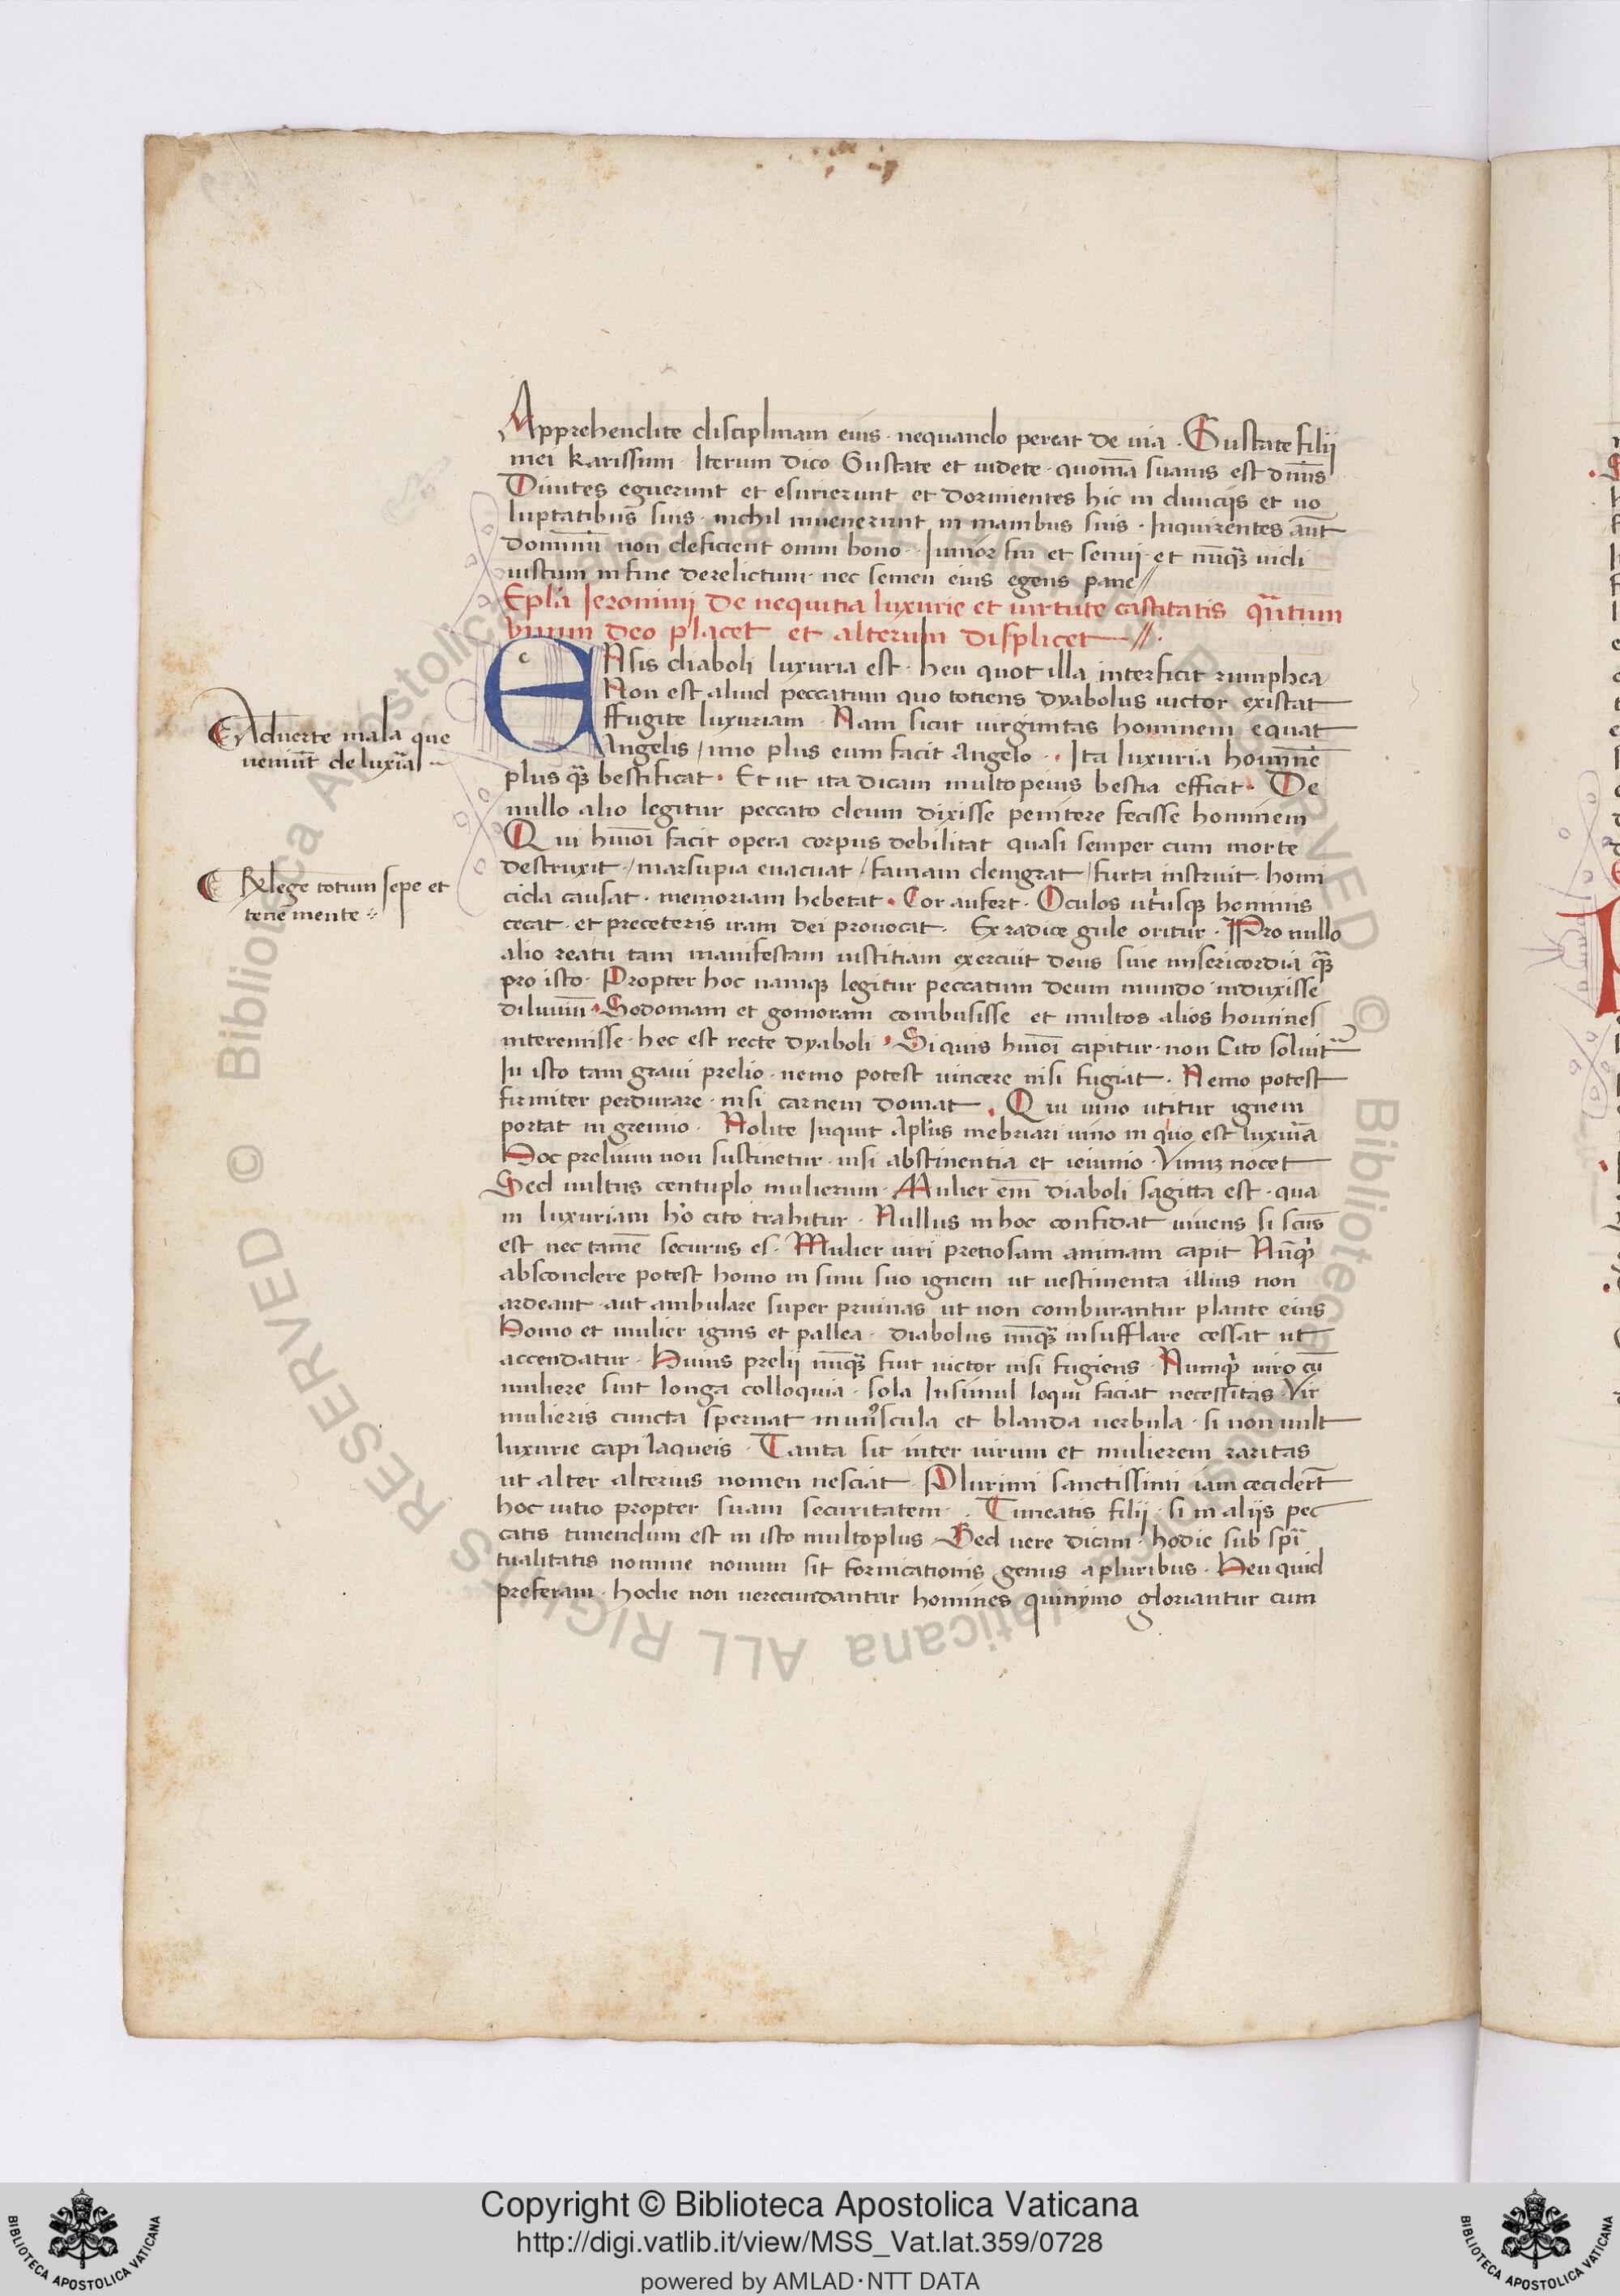 Apprehendite disciplinam eius · nequando pereat de uia · Gustate filij
mei karissimi · Iterum dico Gustate et uidete · quoniā suauis est dn̄s
Diuites eguerunt et esurierunt et dormientes hic in diuicijs et uo
luptatibus suis · nichil inuenerunt in manibus suis · Inquirentes aūt
dominū non deficient omni bono · Iunior fui et senui · et nūq̄ uidi
iustum in fine derelictum · nec semen eius egens pane //
Epl̄a Jeronimi de nequitia luxurie et uirtute castitatis q̄ntum
vnum deo placet et alterum displicet //.
c
ENsis diaboli luxuria est · heu quot illa interficit rumphea
Non est aliud peccatum quo totiens dyabolus uictor existat
ffugite luxuriam · Nam sicut uirginitas hominem equat
Angelis / imo plus eum facit Angelo · Ita luxuria hominē
plus q̄ bestificat · Et ut ita dicam multo peius bestia efficit · De
nullo alio legitur peccato deum dixisse penitere fecisse hominem
Qui hm̄oi facit opera corpus debilitat quasi semper cum morte
destruxit / marsupia euacuat / famam denigrat / furta instruit · homi
cidia causat · memoriam hebetat · Cor aufert · Oculos utriusq hominis
cecat · et preceteris iram dei prouocat · Ex radice gule oritur · Pro nullo
alio reatu tam manifestam iustitiam exercuit deus sine misericordia q̄
pro isto · Propter hoc namq legitur peccatum deum mundo induxisse
diluuiū · Sodomam et gomoram combusisse et multos alios homines
interemisse · hec est recte dyaboli · Si quis hm̄oi capitur · non Cito soluit~
In isto tam graui prelio · nemo potest uincere nisi fugiat · Nemo potest
firmiter perdurare · nisi carnem domat · Qui uino utitur ignem
portat in gremio · Nolite Inquit Apl̄us inebriari uino in quo est luxuria
Hoc prelium non sustinetur · nisi abstinentia et ieiunio · Vinuz nocet
Sed uultus centuplo mulierum · Mulier em̄ diaboli sagitta est · qua
in luxuriam ho cito trahitur · Nullus in hoc confidat uiuens si scūs
est nec tamē securus es · Mulier uiri pretiosam animam capit Nūq̄
abscondere potest homo in sinu suo ignem ut uestimenta illius non
ardeant · aut ambulare super pruinas ut non comburantur plante eius
Homo et mulier ignis et pallea · diabolus nūq̄ insufflare cessat ut
accendatur · Huius prelij nūq̄ fuit uictor nisi fugiens · Numq̄ uiro cū
muliere sint longa colloquia · sola Insimul loqui faciat necessitas · Vir
mulieris cuncta spernat munuscula et blanda uerbula · si non uult
luxurie capi laqueis · Tanta sit inter uirum et mulierem raritas
ut alter alterius nomen nesciat · Plurimi sanctissimi iam cecidert̄
hoc uitio propter suam securitatem · Timeatis filij · si in alijs pec
catis timendum est in isto multoplus · Sed uere dicam · hodie sub spi
tualitatis nomine nouum sit fornicationis genus apluribus · Heu quid
preferam · hodie non uerecundantur homines quinymo gloriantur cum
Aduerte mala que
ueniūt de luxia
Relege totum sepe et
tene mente
Copyright © Biblioteca Apostolica Vaticana
http://digi.vatlib.it/view/MSS_Vat.lat.359/0728
powered by AMLAD·NTT DATA
BIBLIOTECA APOSTOLICA VATICANA
BIBLIOTECA APOSTOLICA VATICANA
© Biblioteca Apostolica Vaticana ALL RIGHTS RESERVED
© Biblioteca Apostolica Vaticana ALL RIGHTS RESERVED